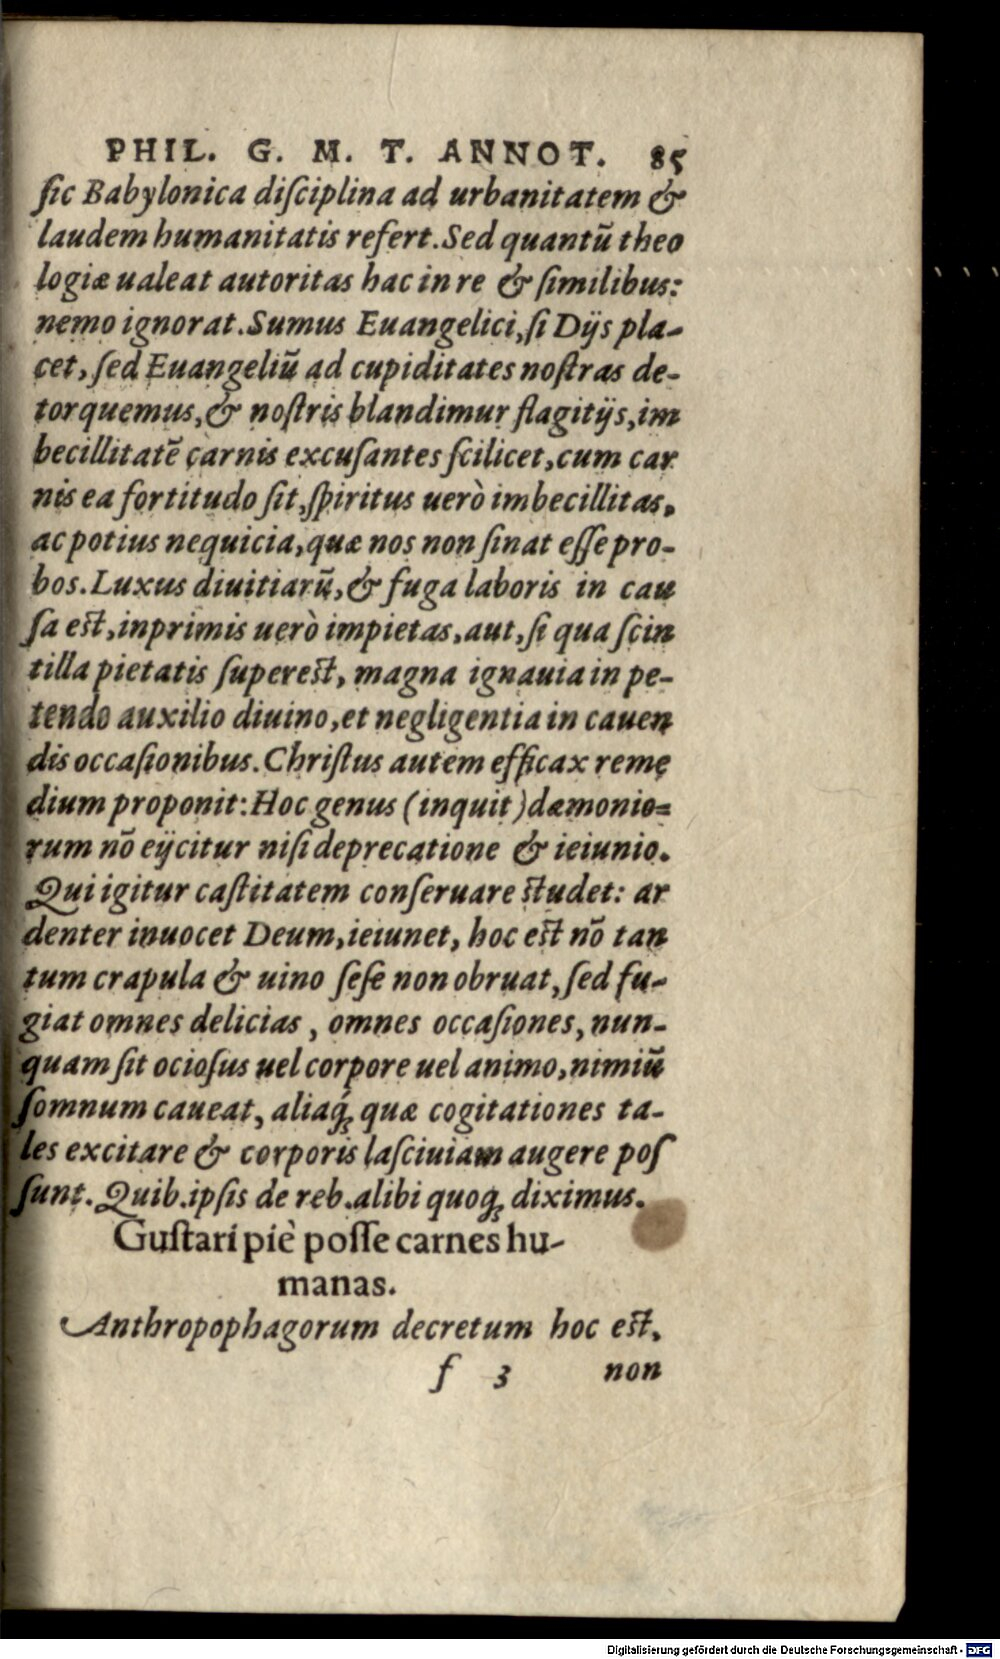 PHIL. G. M. T. ANNOT. 85
ſic Babylonica diſciplina ad urbanitatem &
laudem humanitatis refert. Sed quantũ theo
logiæ ualeat autoritas hac in re & ſimilibus:
nemo ignorat. Sumus Euangelici, ſi Dijs pla-
cet, ſed Euangeliũ ad cupiditates noſtras de-
torquemus, & noſtris blandimur flagitijs, im
becillitatẽ carnis excuſantes ſcilicet, cum car
nis ea fortitudo ſit, ſpiritus uerò imbecillitas,
ac potius nequicia, quæ nos non ſinat eſſe pro-
bos. Luxus diuitiarũ, & fuga laboris in cau
ſa eſt, inprimis uerò impietas, aut, ſi qua ſcin
tilla pietatis ſupereſt, magna ignauia in pe-
tendo auxilio diuino, et negligentia in cauen
dis occaſionibus. Chriſtus autem efficax reme
dium proponit: Hoc genus (inquit) dæmonio=
rum nõ eijcitur niſi deprecatione & ieiunio.
Qui igitur caſtitatem conſeruare ſtudet: ar
denter inuocet Deum, ieiunet, hoc eſt nõ tan
tum crapula & uino ſeſe non obruat, ſed fu-
giat omnes delicias, omnes occaſiones, nun-
quam ſit ocioſus uel corpore uel animo, nimiũ
ſomnum caueat, aliaq́; quæ cogitationes ta-
les excitare & corporis laſciuiam augere poſ
ſunt. Quib. ipſis de reb. alibi quoq; diximus.
Guſtari piè poſſe carnes hu-
manas.
Anthropophagorum decretum hoc eſt,
f 3 non
Digitalisierung gefördert durch die Deutsche Forschungsgemeinschaft - DFG